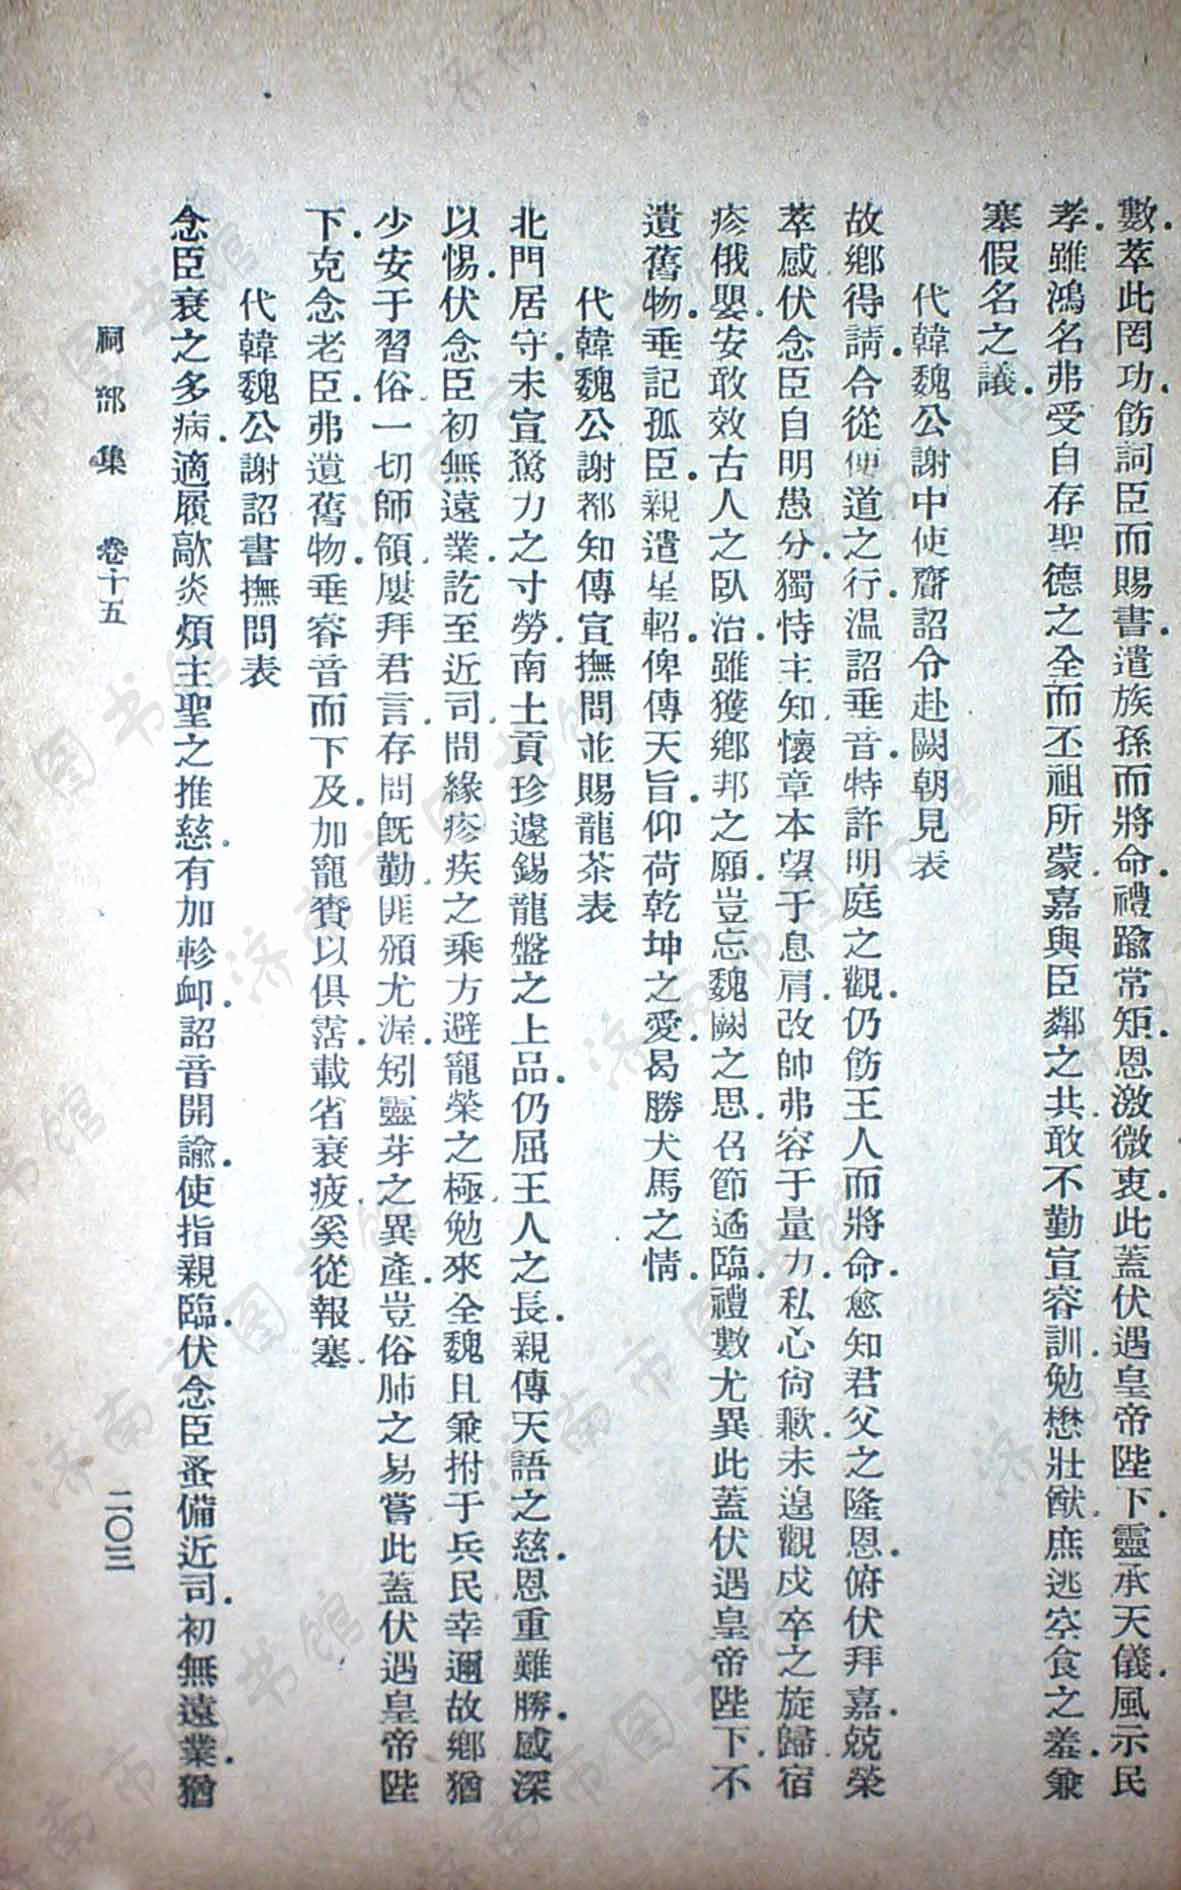 數萃此罔功飭詞臣而賜書遣族孫而將命禮踰常矩恩激微衷此蓋伏遇皇帝陛下靈承天儀風示民
孝雖鴻名弗受自存聖德之全而丕祖所蒙嘉與臣鄰之共敢不勤宣睿訓勉懋壯猷庶逃空食之羞兼
塞假名之議
代韓魏公謝中使齎詔令赴闕朝見表
故鄉得請合從便道之行溫詔垂音特許明庭之觀仍飭王人而將命愈知君父之隆恩俯伏拜嘉兢榮
萃感伏念臣自明愚分獨恃主知懷章本望于息肩改帥弗容于量力私心尙歉未遑觀戍卒之旋歸宿
疹俄嬰安敢效古人之臥治雖獲鄉邦之願豈忘魏闕之思召節遹臨禮數尤異此蓋伏遇皇帝陛下不
遺舊物垂記孤臣親遣星軺俾傳天旨仰荷乾坤之愛曷勝犬馬之情
代韓魏公謝都知傳宣撫問並賜龍茶表
北門居守未宣駑力之寸勞南土貢珍遽錫龍盤之上品仍屈王人之長親傳天語之慈恩重難勝感深
以惕伏念臣初無遠業訖至近司間緣疹疾之乘方避寵榮之極勉來全魏且兼拊于兵民幸邇故鄉猶
少安于習俗一切師領屢拜君言存問旣勤匪頒尤渥矧靈芽之異產豈俗肺之易嘗此蓋伏遇皇帝陛
下克念老臣弗遺舊物垂睿音而下及加寵賚以俱霑載省衰疲奚從報塞
代韓魏公謝詔書撫問表
念臣衰之多病適履歊炎煩主聖之推慈有加軫䘏詔音開諭使指親臨伏念臣蚤備近司初無遠業猶
祠部集　卷十五
二〇三
济南市图书馆